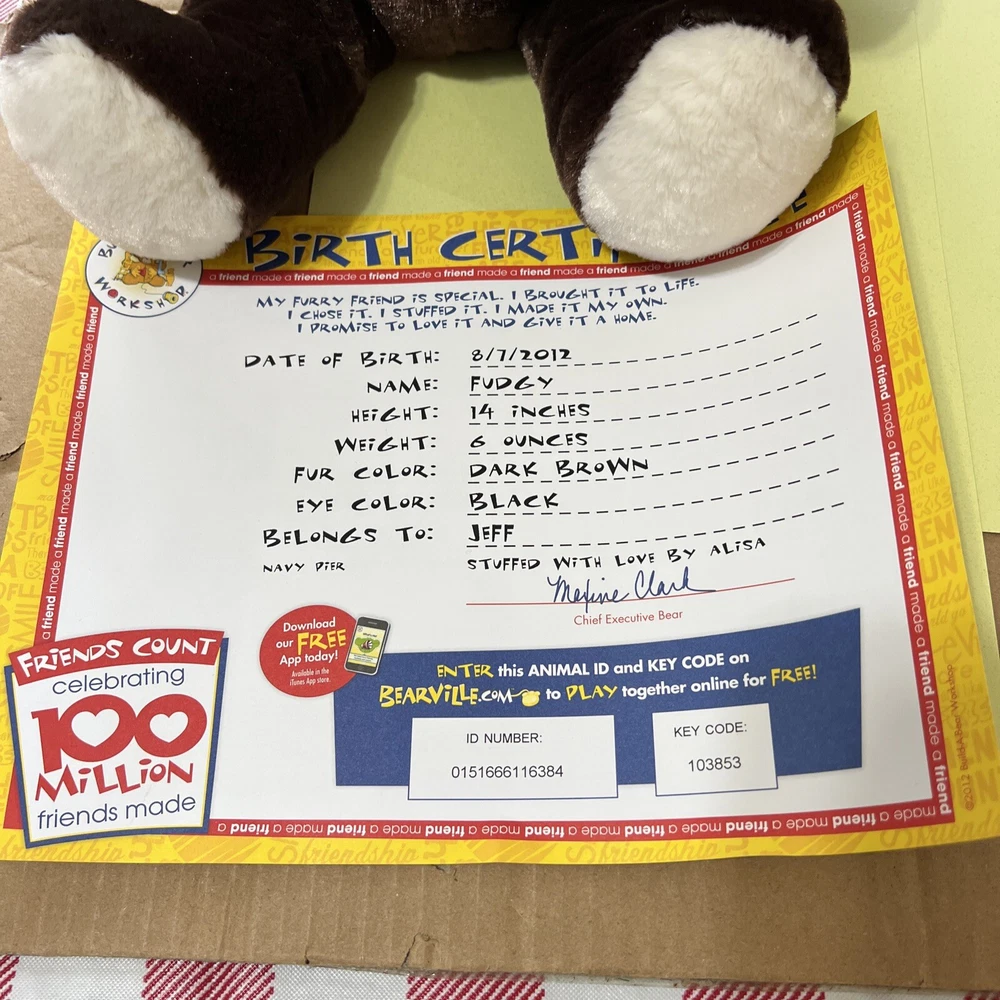 BIRTH CERTI
WORKSHOP
a friend made a friend made a friend made a friend made a friend made a friend made a friend made
MY FURRY FRIEND IS SPECIAL. I BROUGHT IT TO LIFE.
I CHOSE IT. I STUFFED IT. I MADE IT MY OWN.
I PROMISE TO LOVE IT AND GIVE IT A HOME.
DATE OF BIRTH: 8/7/2012
NAME: FUDGY
HEIGHT: 14 INCHES
WEIGHT: 6 OUNCES
FUR COLOR: DARK BROWN
EYE COLOR: BLACK
BELONGS TO: JEFF
NAVY PIER STUFFED WITH LOVE BY ALISA
Maxine Clark
Chief Executive Bear
Download
our FREE
App today!
Available in the
iTunes App store.
FRIENDS COUNT
celebrating
100
MILLION
friends made
ENTER this ANIMAL ID and KEY CODE on
BEARVILLE.COM to PLAY together online for FREE!
ID NUMBER:
0151666116384
KEY CODE:
103853
©2012 Build-A-Bear Workshop
a friend made a friend made a friend made a friend made a friend made a friend made a friend made a friend
friendship